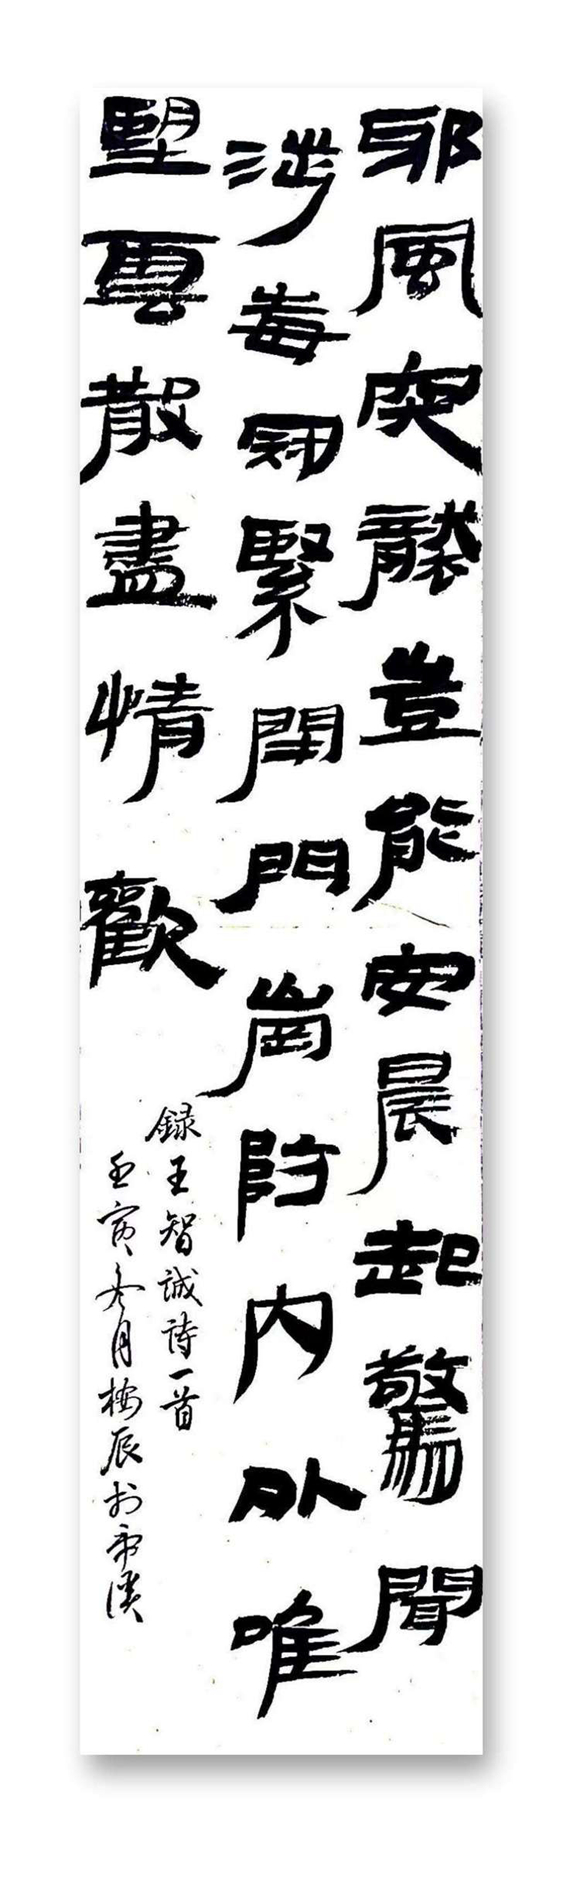 邪風突襲豈能安晨起驚聞
涉毒緊閉門崗防内外唯
望雲散盡情歡
録王智誠詩一首
壬寅冬月辰於